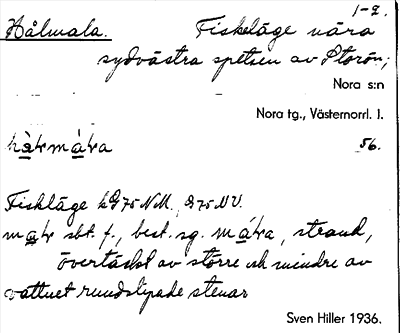 Hålmala. Fiskeläge nära 1-2.
sydvästra spetsen av Storön,
Nora s:n
Nora tg., Västernorrl. l.
56.
Fiskläge
sbt. f., best. sg. strand,
övertäckt av större och mindre av
vattnet rundslipade stenar
Sven Hiller 1936.